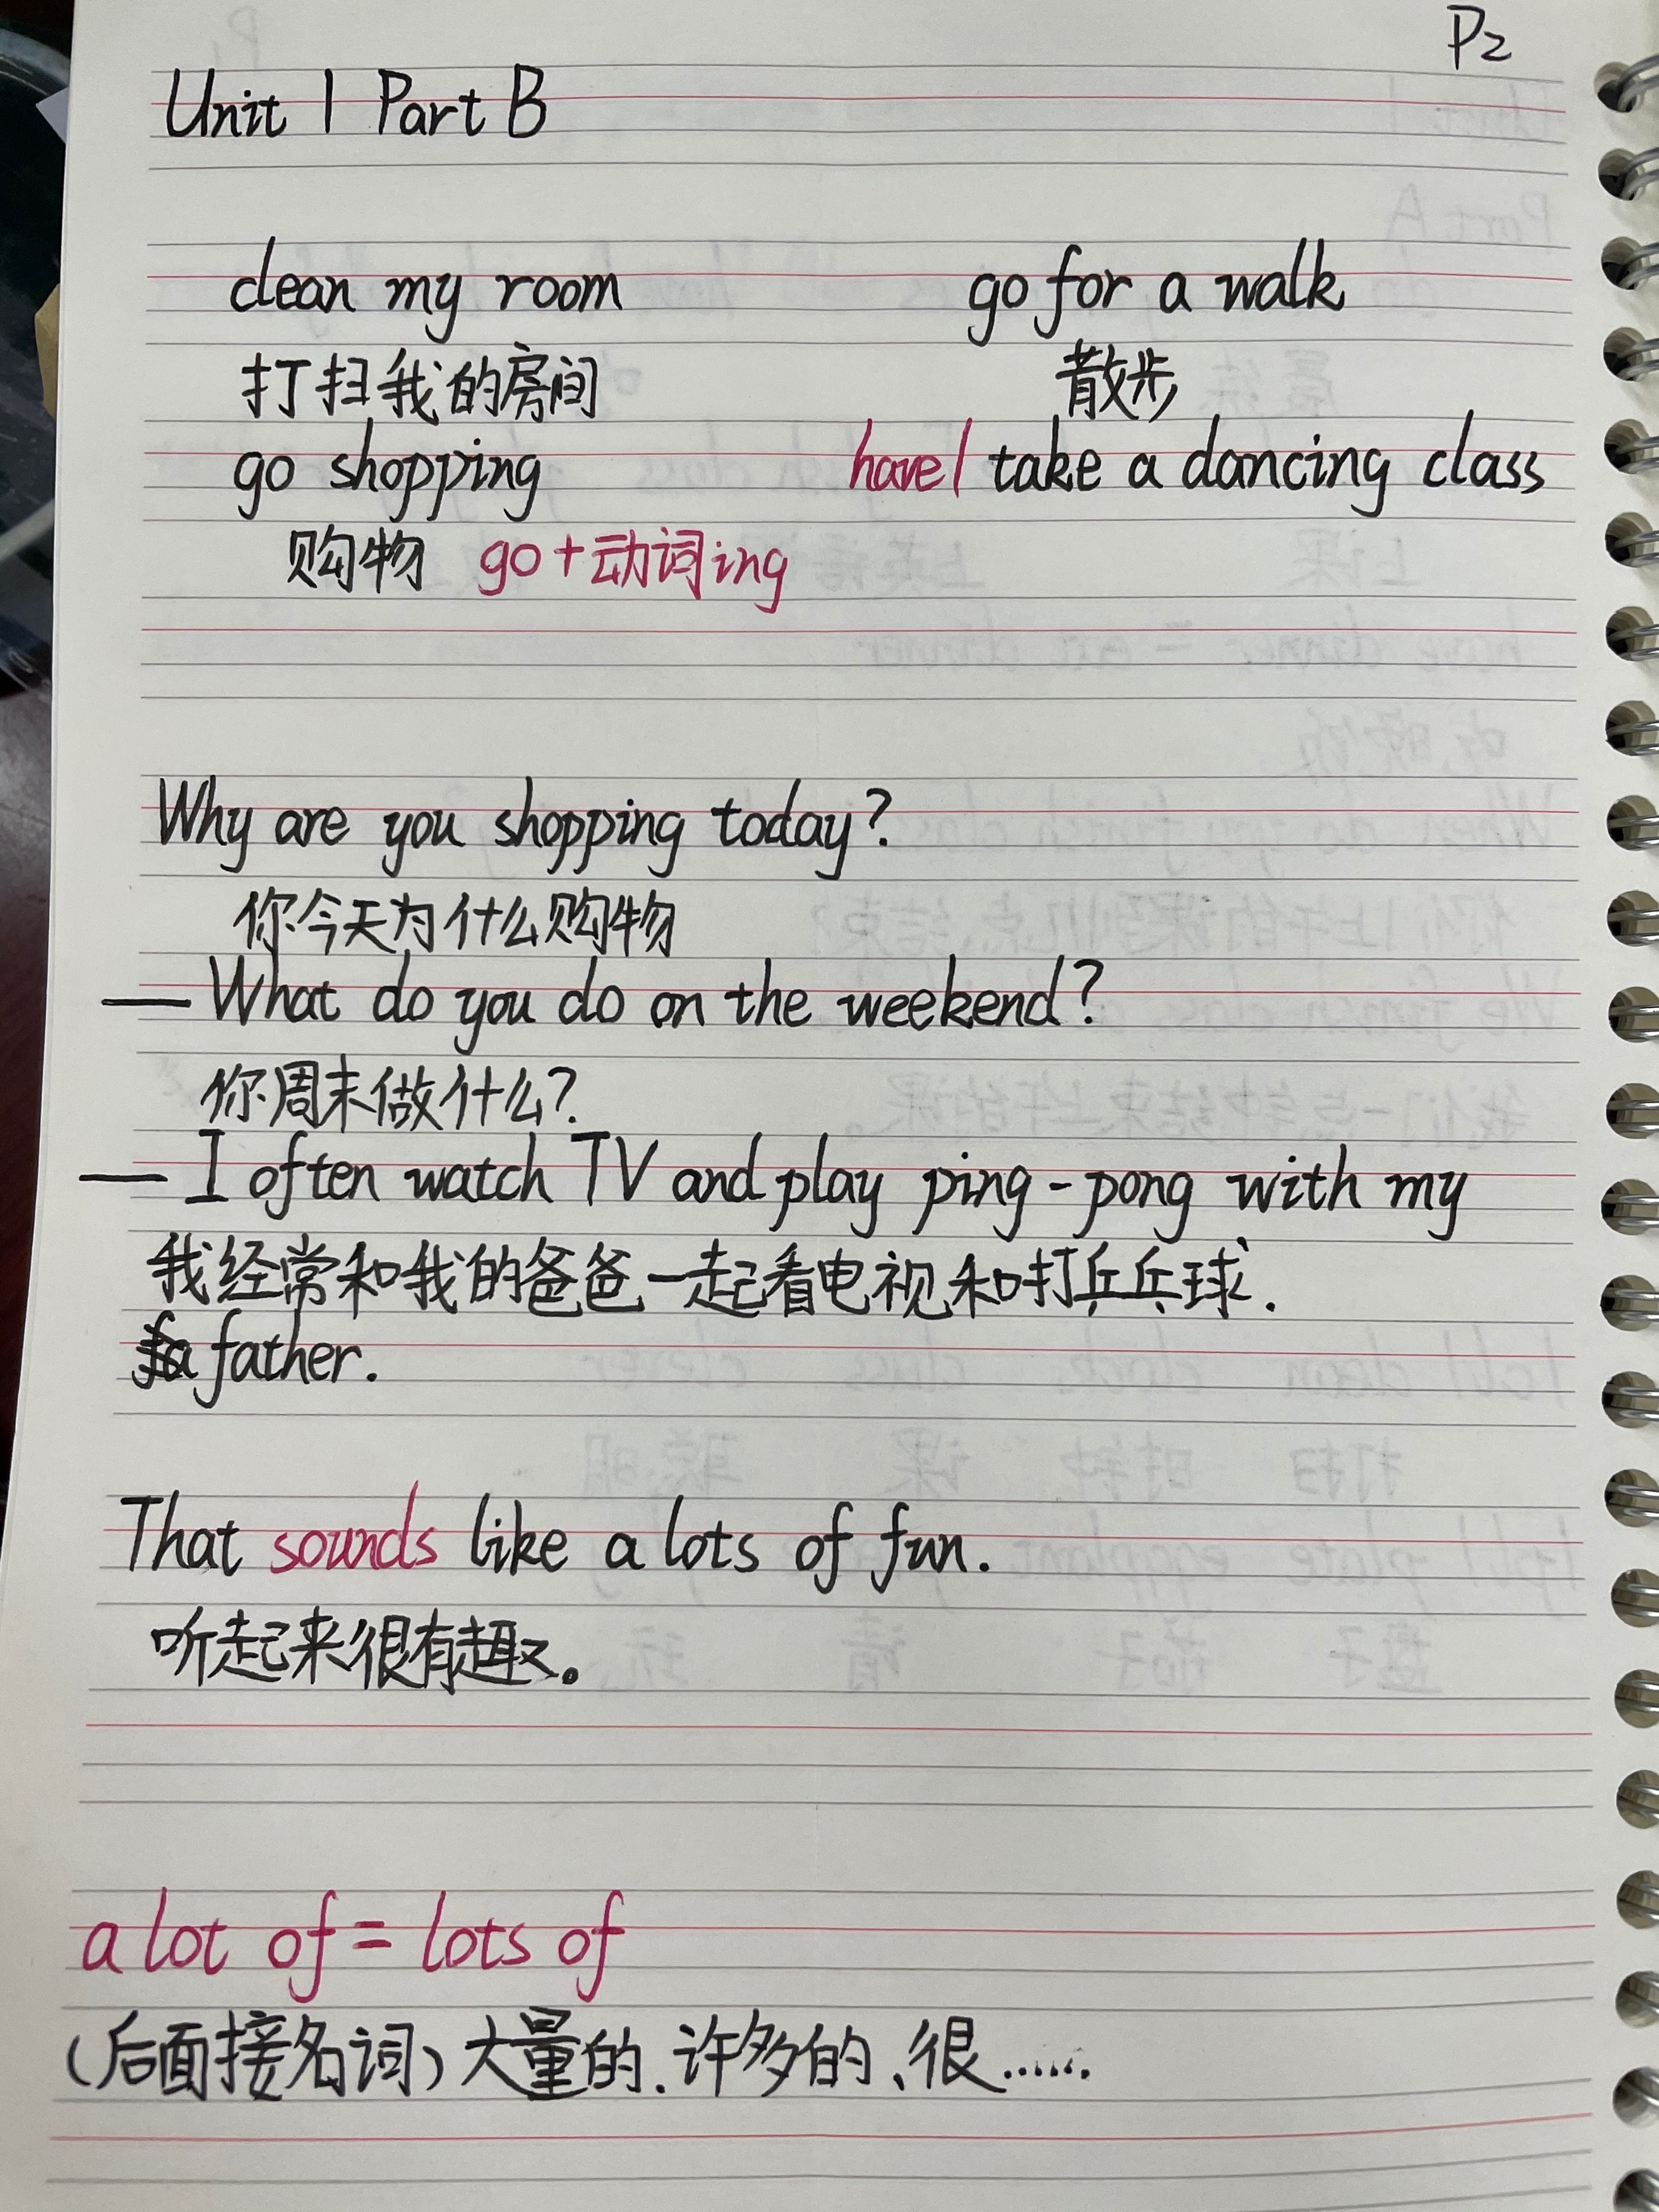 P2
Unit 1 Part B
clean my room go for a walk
打扫我的房间 散步
go shopping have/ take a dancing class
购物 go+动词ing
Why are you shopping today?
你今天为什么购物
— What do you do on the weekend?
你周末做什么?
— I often watch TV and play ping-pong with my
我经常和我的爸爸一起看电视和打乒乓球.
father.
That sounds like a lots of fun.
听起来很有趣。
a lot of = lots of
(后面接名词)大量的、许多的、很......